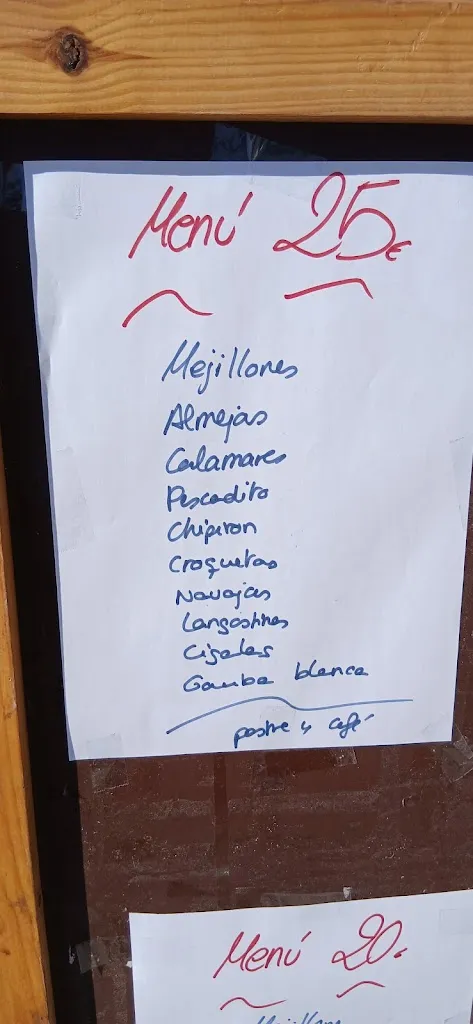 Menú 25€
Mejillones
Almejas
Calamares
Pescadito
Chipiron
Croquetas
Navajas
Langostinos
Cigalas
Gamba blanca
postre y café
Menú 20€
Mejillones